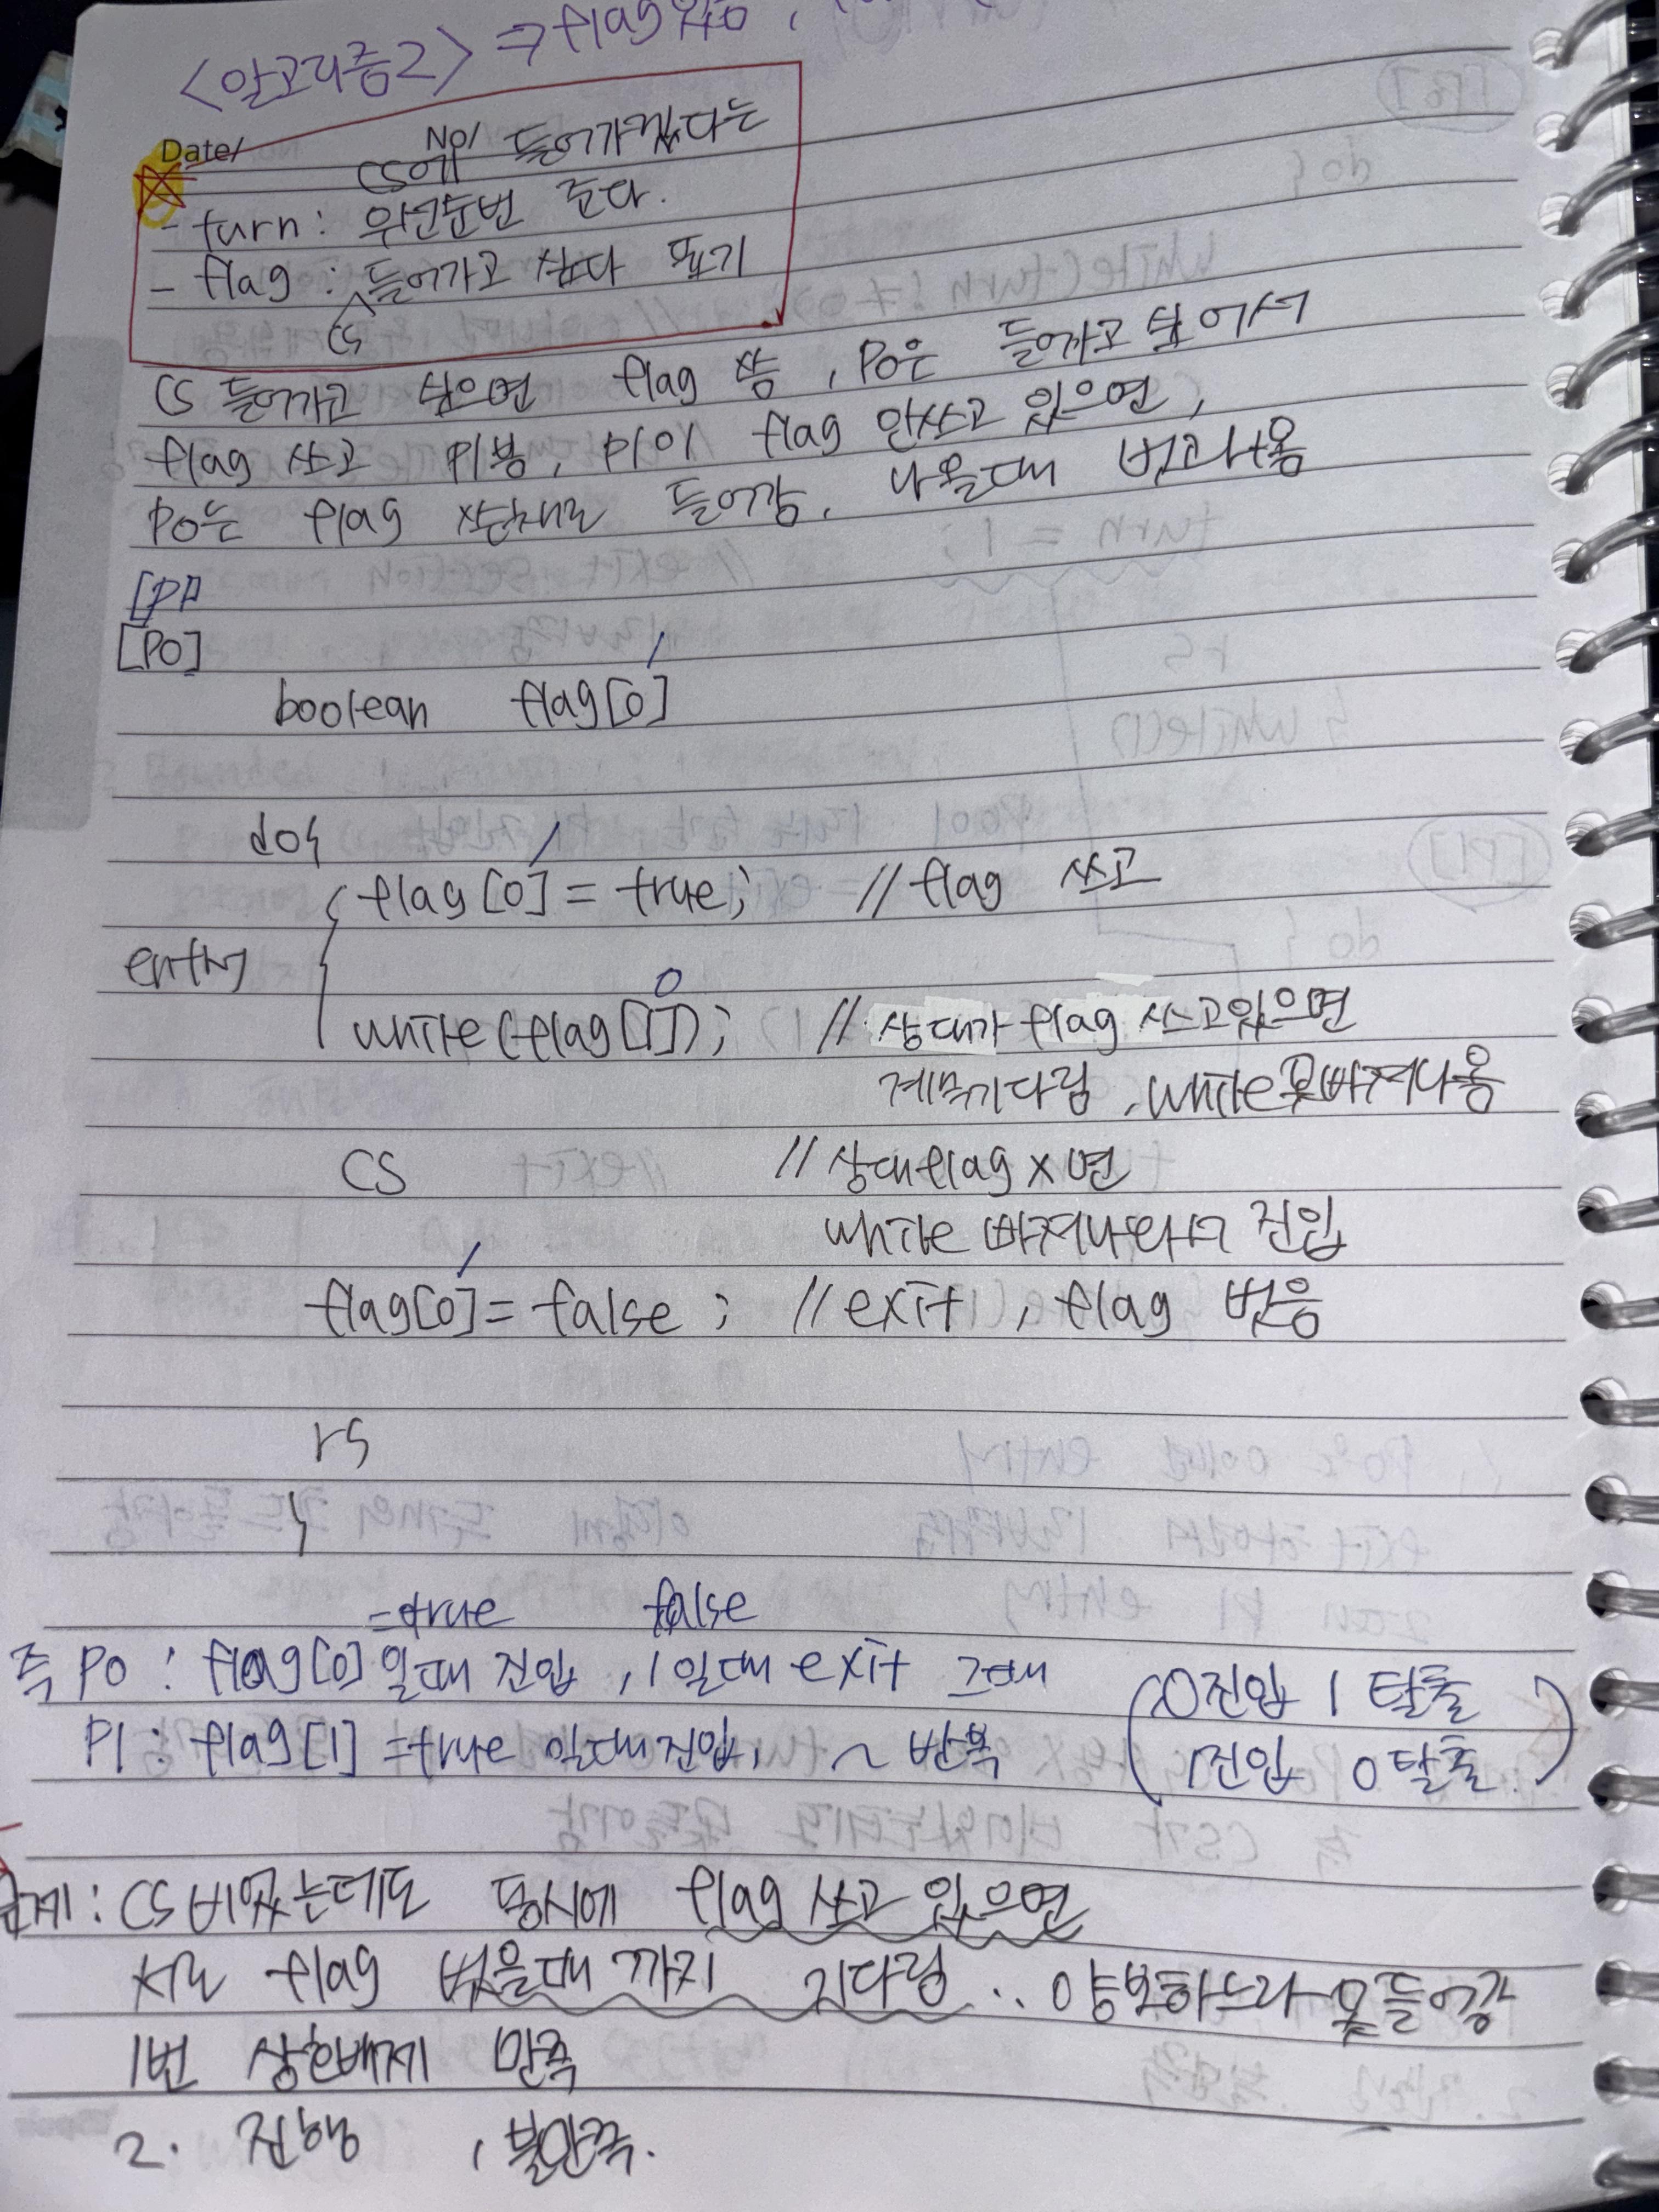 <알고리즘2> ⇒ flag 있음,
Date/ No/
CS에 들어가겠다는
- turn : 우선순번 준다.
- flag : 들어가고 싶다 표기
CS
CS 들어가고 싶으면 flag 씀, P0은 들어가고 싶어서
flag 쓰고 P1봄, P1이 flag 안쓰고 있으면,
P0는 flag 쓴채로 들어감, 나올때 벗고나옴
[P1]
[P0]
1
boolean flag[0]
do{
1
flag[0] = true; // flag 쓰고
entry
0
while(flag[1]); // 상대가 flag 쓰고있으면
계속기다림, while못빠져나옴
CS // 상대flag x 면
while 빠져나와서 진입
1
flag[0] = false; // exit, flag 벗음
rs
}
=true false
즉 P0 : flag[0]일때 진입, 1일때 exit 그때 (0진입 1 탈출
P1 : flag[1] =true 일때진입, ~ 반복 1진입 0탈출)
문제 : CS비었는데도 동시에 flag 쓰고 있으면
서로 flag 벗을때 까지 기다림.. 양보하느라 못들어감
1번 상호배제 만족
2. 진행, 불만족.